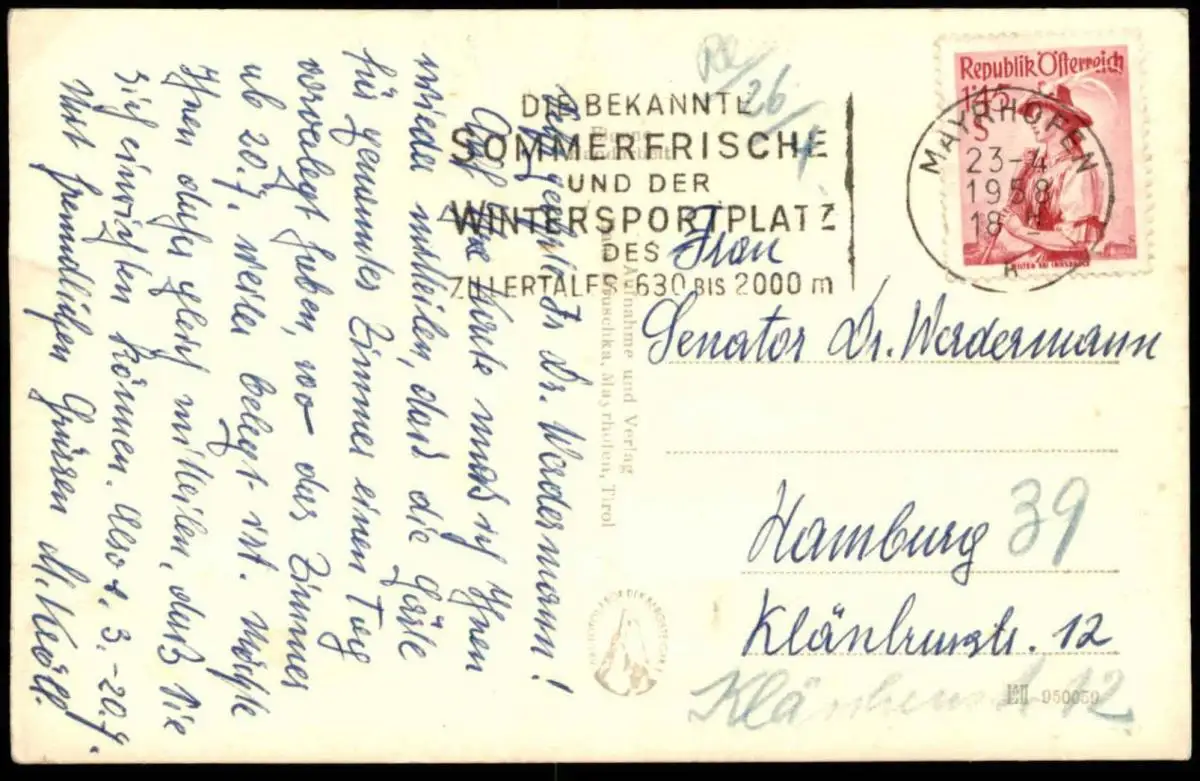 Sehr geehrte Fr Dr. Werdermann!
Auf Ihre Karte muss ich Ihnen
wieder mitteilen, dass die Gäste
für genanntes Zimmer einen Tag
vorverlegt haben, wo das Zimmer
ab 20.7. weiter belegt ist. Möchte
Ihnen daher gleich mitteilen, daß Sie
sich einrichten können. Also v. 3.-20.7.
Mit freundlichen Grüssen M.
DIE BEKANNTE
SOMMERFRISCHE
UND DER
WINTERSPORTPLATZ
DES
ZILLERTALES 630 BIS 2000 m
26/4
Republik Österreich
1·45
S
MAYRHOFEN
23-4
1958
18
Aufnahme und Verlag
Mayrhofen, Tirol
Frau
Senator Dr. Werdermann
Hamburg 39
Klärchenstr. 12
Klärchenst 12
950059